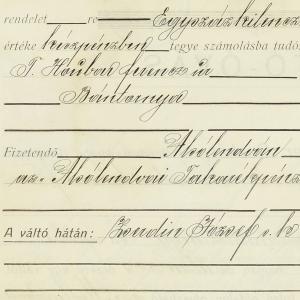 rendelet re Egyszáz kilencz
értéke készpénzben tegye számolásba tudó
T. Houbar Ferencz úr
Bántornya
Fizetendő Alsólendván
az Alsólendvai Takarékpénz
A váltó hátán: Zserdin József s. k.